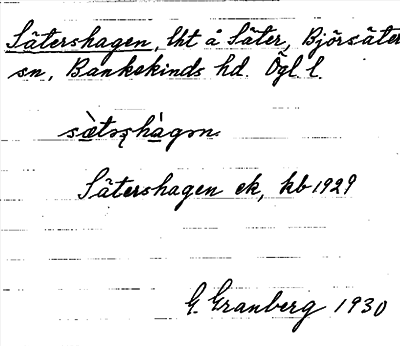 Sätershagen, lht å Säter, Björsäter
sn, Bankekinds hd. Ögl. l.
sæ̀toʂhàgon
Sätershagen ek, kb 1929
G. Granberg 1930